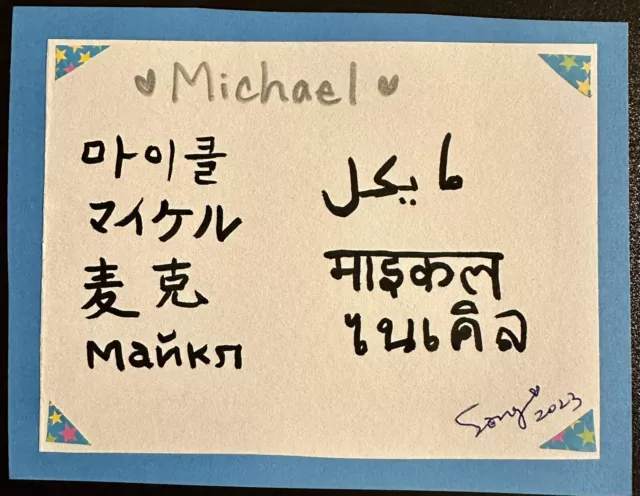 Michael
마이클
マイケル
麦克
Майкл
مايكل
माइकल
ไมเคิล
Song 2023